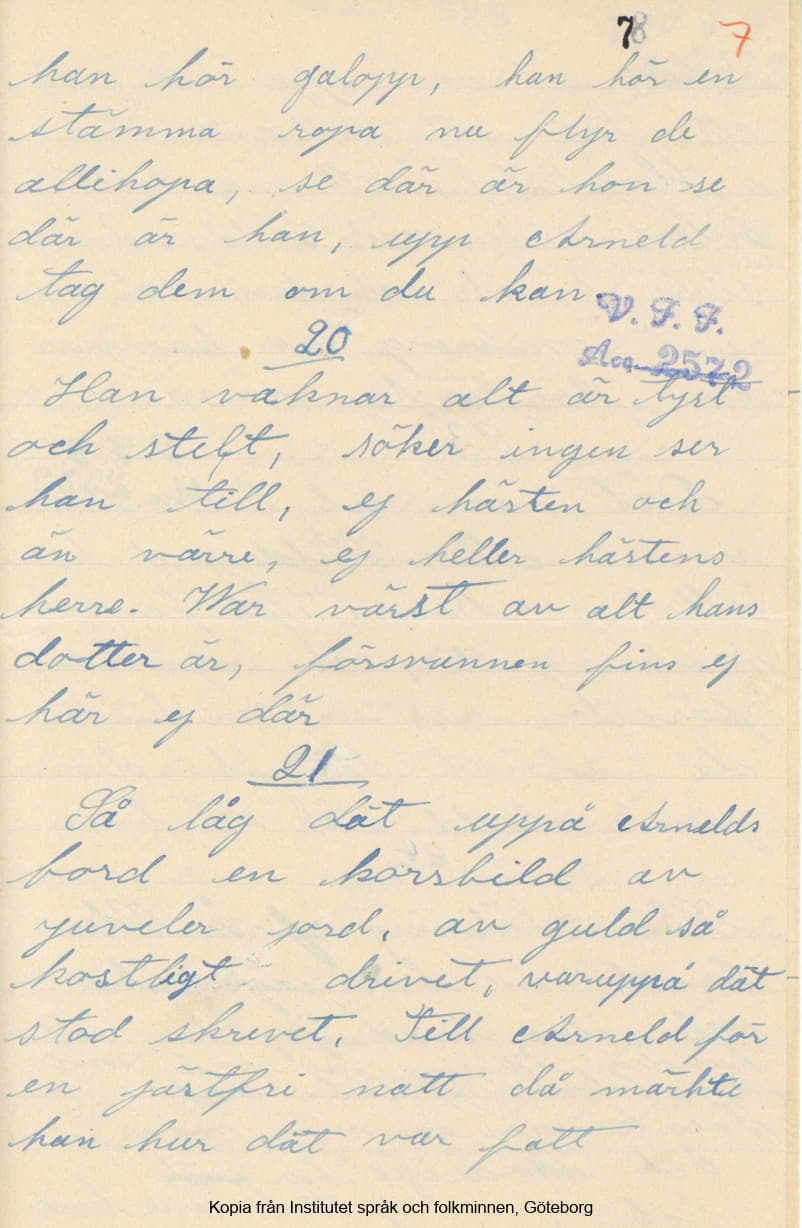 78 7
han hör galopp, han hör en
stämma ropa nu flyr de
allihopa, se där är hon se
där är han, upp Arneld
tag dem om du kan
V. F. F.
20
Acc. 2572
Han vaknar alt är tyst
och stelt, söker ingen ser
han till, ej hästen och
än värre, ej heller hästens
herre. War värst av alt hans
dotter är, försvunnen fins ej
här ej där
21
Så låg dät uppå Arnelds
bord en korsbild av
juveler jord, av guld så
kostligt drivet, varuppå dät
stod skrevet. Till Arneld för
en jästfri natt då märkte
han hur dät var fatt
Kopia från Institutet språk och folkminnen, Göteborg